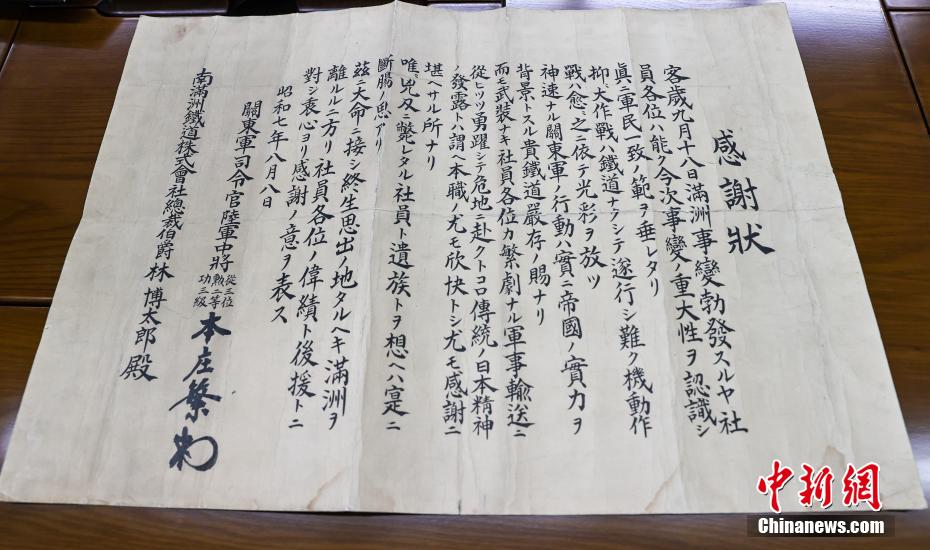 感謝狀
客歲九月十八日滿洲事變勃發スルヤ社
員各位ハ能ク今次事變ノ重大性ヲ認識シ
眞ニ軍民一致ノ範ヲ垂レタリ
抑〻大作戰ハ鐵道ナクシテ遂行シ難ク機動作
戰ハ愈〻之ニ依テ光彩ヲ放ツ
神速ナル關東軍ノ行動ハ實ニ帝國ノ實力ヲ
背景トスル貴鐵道嚴存ノ賜ナリ
而モ武裝ナキ社員各位カ繁劇ナル軍事輸送ニ
從ヒツツ勇躍シテ危地ニ赴クトコロ傳統ノ日本精神
ノ發露トハ謂ヘ本職ノ尤モ欣快トシ尤モ感謝ニ
堪ヘサル所ナリ
唯〻兇刄ニ斃レタル社員ト遺族トヲ想ヘハ寔ニ
斷腸ノ思アリ
玆ニ大命ニ接シ終生思出ノ地タルヘキ滿洲ヲ
離ルルニ方リ社員各位ノ偉績ト後援トニ
對シ衷心ヨリ感謝ノ意ヲ表ス
昭和七年八月八日
關東軍司令官陸軍中將
從三位
勲二等
功三級
本庄繁
南滿洲鐵道株式會社總裁伯爵 林 博太郎 殿
中新網
Chinanews.com